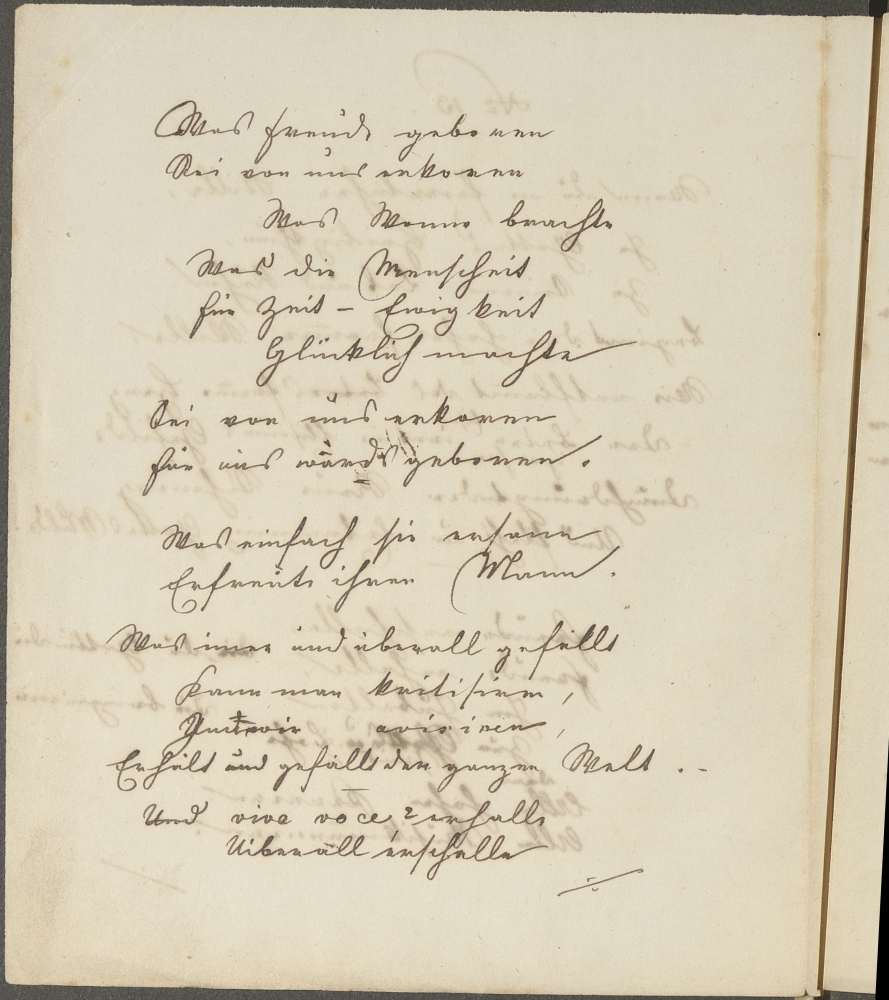 Was Freude geboren
Sei von uns erkoren
Was Wonne brachte
Was die Menscheit
für Zeit – Ewigkeit
Glücklich machte
Sei von uns erkoren
für uns würds geboren.
Was einfach sie ersann
Erfreute ihren Mann.
Was imer und überall gefällt
Kann man kritisiren,
wir
Erhält und gefällt der ganzen Welt . -
Und viva voce erhalle
Uiberall erschalle